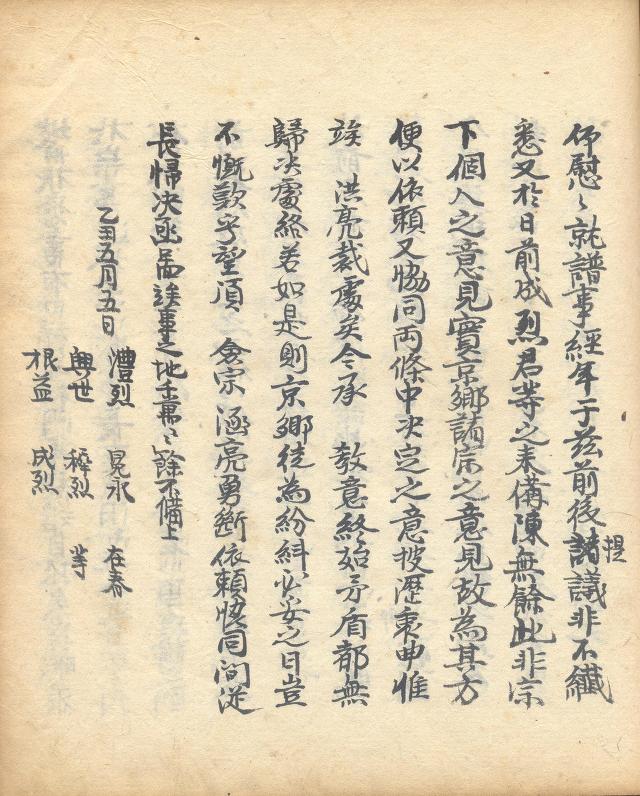 仰慰〻就譜事經年于玆前後提議非不纖
悉又於日前成烈君等之来備陳無餘此非宗
下個人之意見實京鄕諸宗之意見故為其方
便以依賴又協同両條中决定之意披瀝衷曲惟
竢 洪亮裁處矣今承 敎意終始矛盾都無
歸决處終若如是則京鄕徒為紛糾必妥之日豈
不慨歎乎望須 僉宗涵亮勇斷依賴協同間從
長歸决亟啚竢事之地千萬〻餘不備上
乙丑五月五日
澧烈 冕永 在春
興世 稺烈 等
根益 成烈